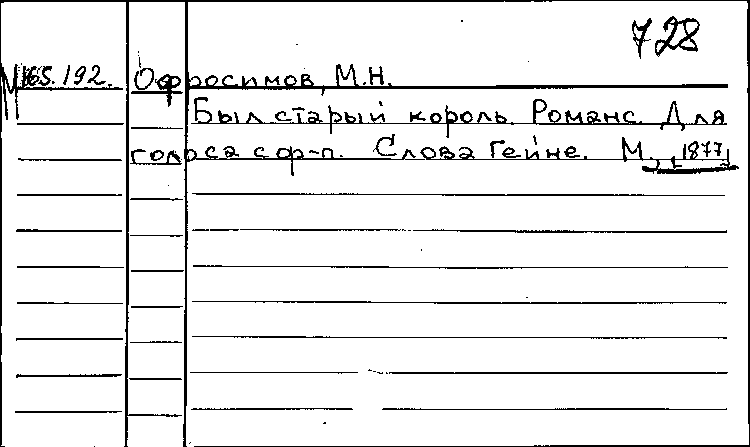 728
М 165.192. Офросимов, М.Н.
Был старый король. Романс. Для
голоса с ф-п. Слова Гейне. М., [1877]